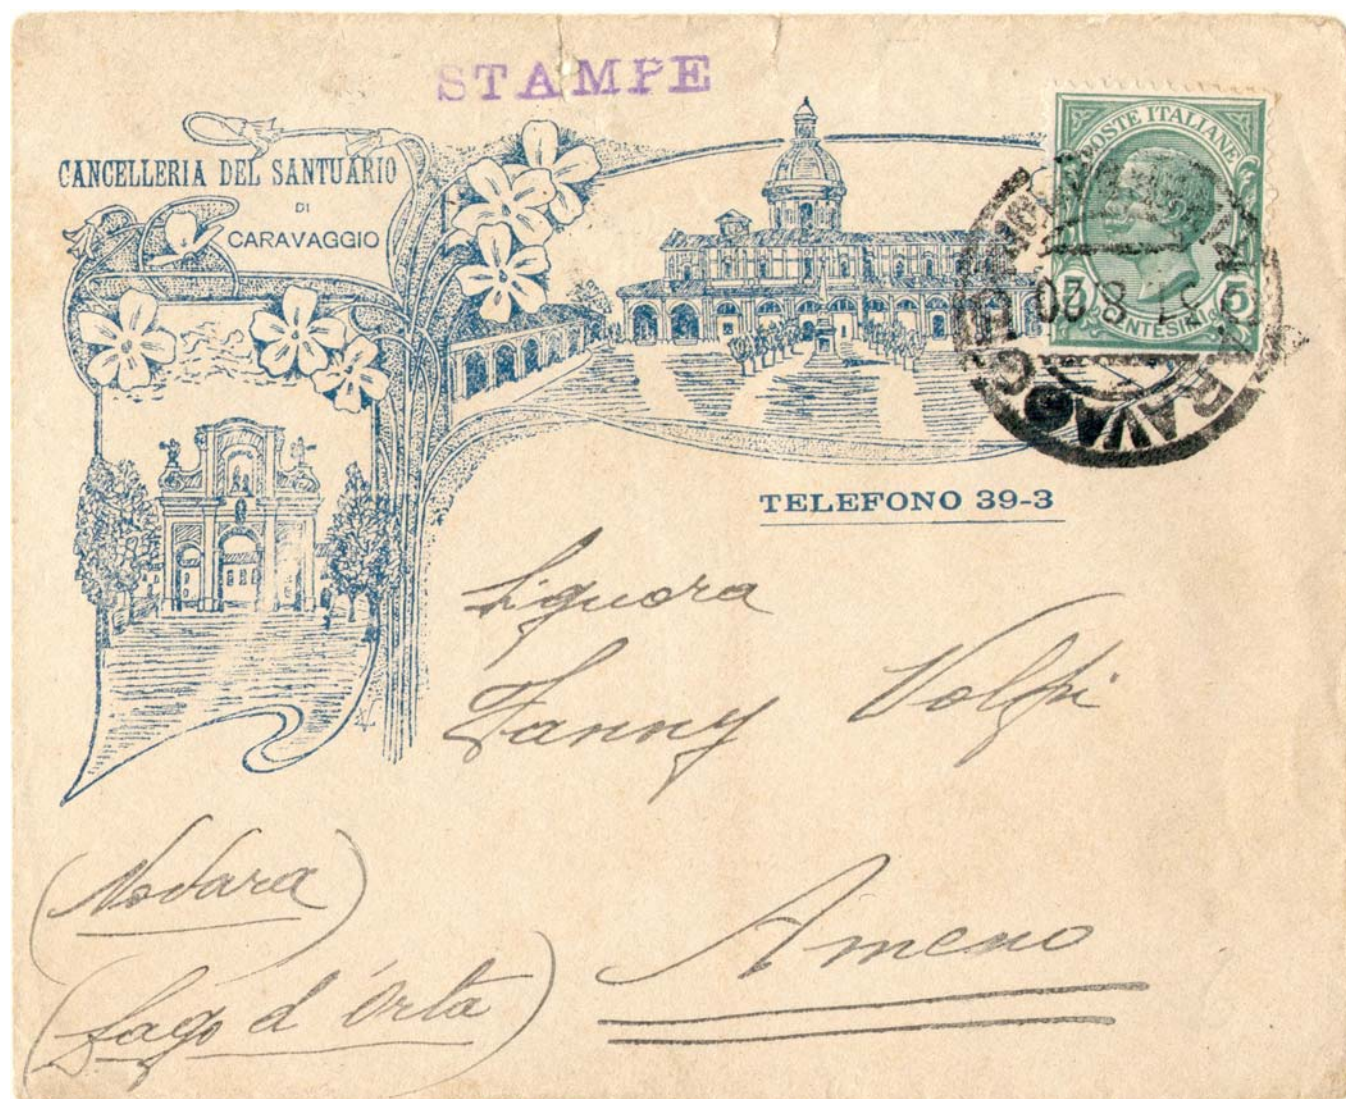 STAMPE
CANCELLERIA DEL SANTUARIO
DI
CARAVAGGIO
POSTE ITALIANE
5 CENTESIMI 5
8 20
CARAVAGGIO
TELEFONO 39-3
Signora
Fanny Volpi
(Novara)
Ameno
(Lago d'Orta)